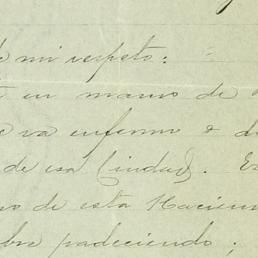 de mi respeto:
en manos de
va enfermo a
de esa Ciudad. Es
de esta Hacien
padeciendo;